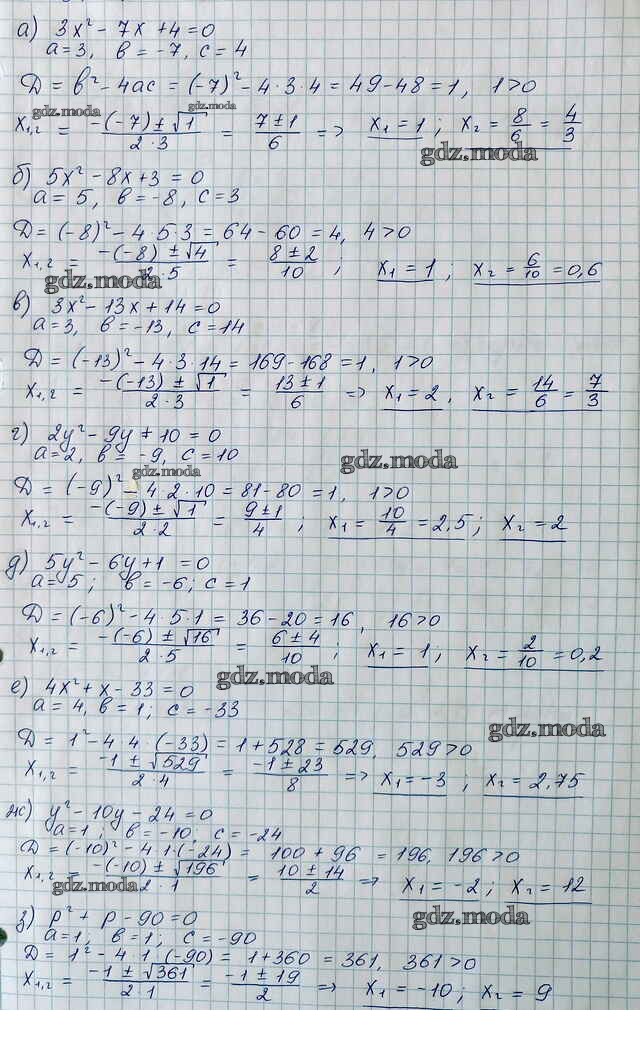 а) 3x² - 7x + 4 = 0
a = 3, b = -7, c = 4
D = b² - 4ac = (-7)² - 4·3·4 = 49 - 48 = 1, 1>0
gdz.moda gdz.moda
x₁,₂ = (-(-7) ± √1)/(2·3) = (7 ± 1)/6 => x₁ = 1; x₂ = 8/6 = 4/3
gdz.moda
б) 5x² - 8x + 3 = 0
a = 5, b = -8, c = 3
D = (-8)² - 4·5·3 = 64 - 60 = 4, 4>0
x₁,₂ = (-(-8) ± √4)/(2·5) = (8 ± 2)/10; x₁ = 1; x₂ = 6/10 = 0,6
gdz.moda
в) 3x² - 13x + 14 = 0
a = 3, b = -13, c = 14
D = (-13)² - 4·3·14 = 169 - 168 = 1, 1>0
x₁,₂ = (-(-13) ± √1)/(2·3) = (13 ± 1)/6 => x₁ = 2, x₂ = 14/6 = 7/3
г) 2y² - 9y + 10 = 0
a = 2, b = -9, c = 10
gdz.moda gdz.moda
D = (-9)² - 4·2·10 = 81 - 80 = 1, 1>0
x₁,₂ = (-(-9) ± √1)/(2·2) = (9 ± 1)/4; x₁ = 10/4 = 2,5; x₂ = 2
д) 5y² - 6y + 1 = 0
a = 5; b = -6; c = 1
D = (-6)² - 4·5·1 = 36 - 20 = 16, 16>0
x₁,₂ = (-(-6) ± √16)/(2·5) = (6 ± 4)/10; x₁ = 1; x₂ = 2/10 = 0,2
gdz.moda
е) 4x² + x - 33 = 0
a = 4, b = 1; c = -33
gdz.moda
D = 1² - 4·4·(-33) = 1 + 528 = 529, 529>0
x₁,₂ = (-1 ± √529)/(2·4) = (-1 ± 23)/8 => x₁ = -3; x₂ = 2,75
ж) y² - 10y - 24 = 0
a = 1; b = -10, c = -24
D = (-10)² - 4·1·(-24) = 100 + 96 = 196, 196>0
x₁,₂ = (-(-10) ± √196)/(2·1) = (10 ± 14)/2 => x₁ = -2; x₂ = 12
gdz.moda
з) p² + p - 90 = 0
gdz.moda
a = 1; b = 1; c = -90
D = 1² - 4·1·(-90) = 1 + 360 = 361, 361>0
x₁,₂ = (-1 ± √361)/(2·1) = (-1 ± 19)/2 => x₁ = -10; x₂ = 9